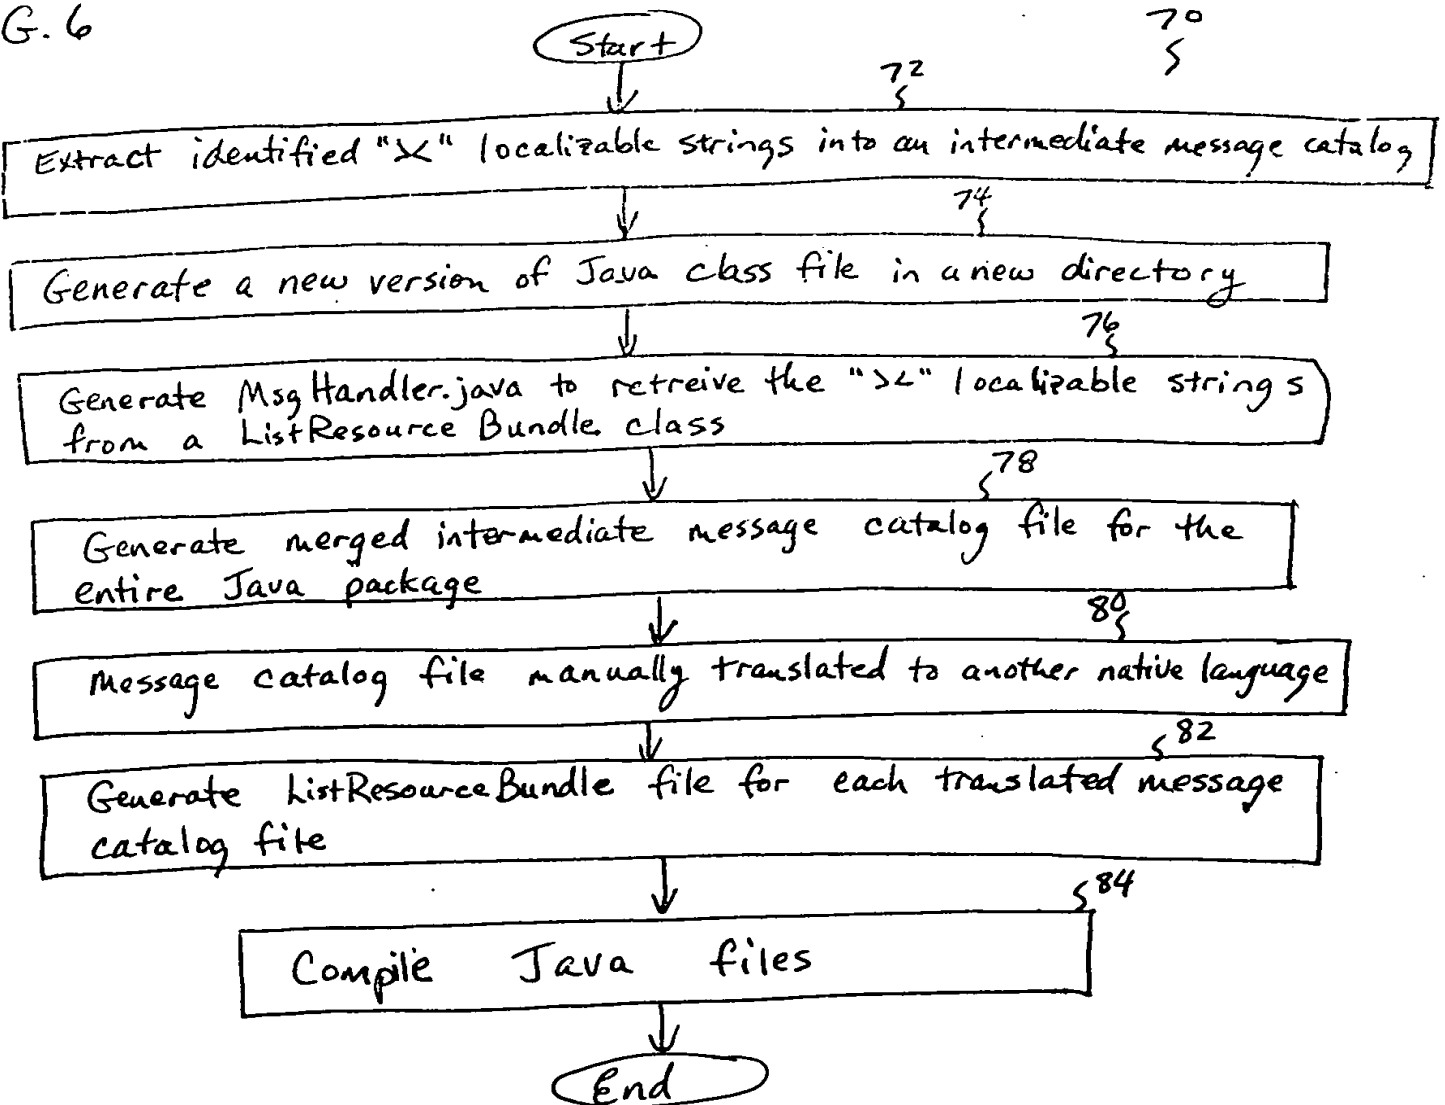 G. 6
Start
70
72
Extract identified "><" localizable strings into an intermediate message catalog
74
Generate a new version of Java class file in a new directory
76
Generate MsgHandler.java to retreive the "><" localizable strings
from a ListResourceBundle class
78
Generate merged intermediate message catalog file for the
entire Java package
80
message catalog file manually translated to another native language
82
Generate ListResourceBundle file for each translated message
catalog file
84
Compile Java files
End